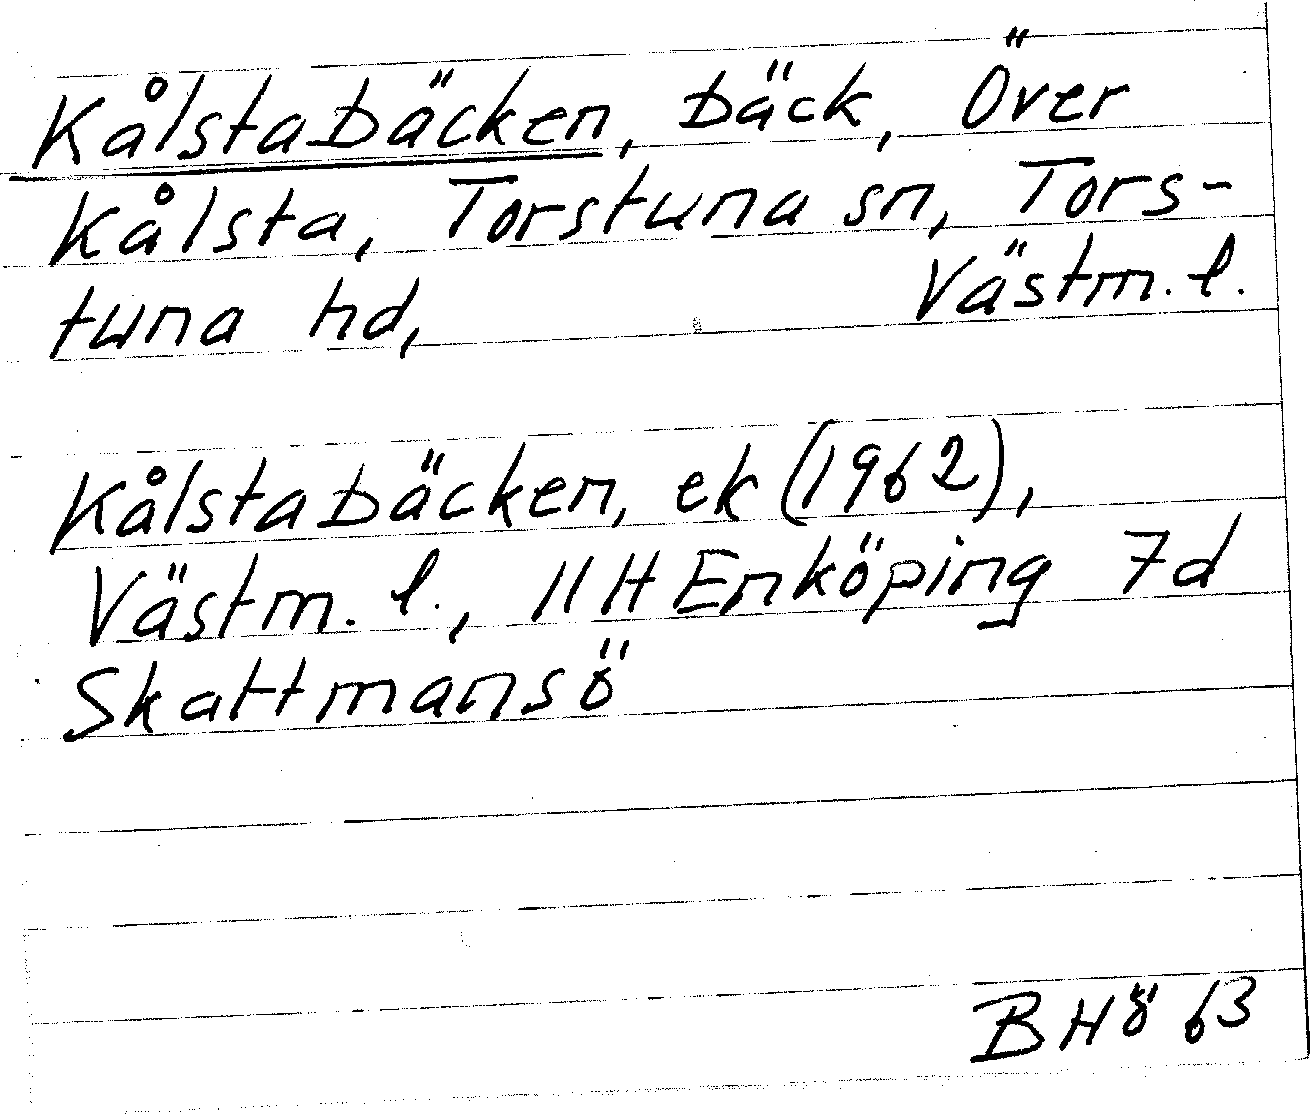 Kålstabäcken, bäck, Över
Kålsta, Torstuna sn, Tors-
tuna hd, Västm. l.
Kålstabäcken, ek (1962),
Västm. l., 11H Enköping 7d
Skattmansö
BHö 63